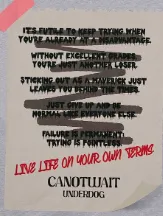 IT'S FUTILE TO KEEP TRYING WHEN
YOU'RE ALREADY AT A DISADVANTAGE.
WITHOUT EXCELLENT GRADES,
YOU'RE JUST ANOTHER LOSER.
STICKING OUT AS A MAVERICK JUST
LEAVES YOU BEHIND THE TIMES.
JUST GIVE UP AND BE
NORMAL LIKE EVERYONE ELSE.
FAILURE IS PERMANENT;
TRYING IS POINTLESS.
LIVE LIFE ON YOUR OWN TERMS.
CANOTWAIT
UNDERDOG